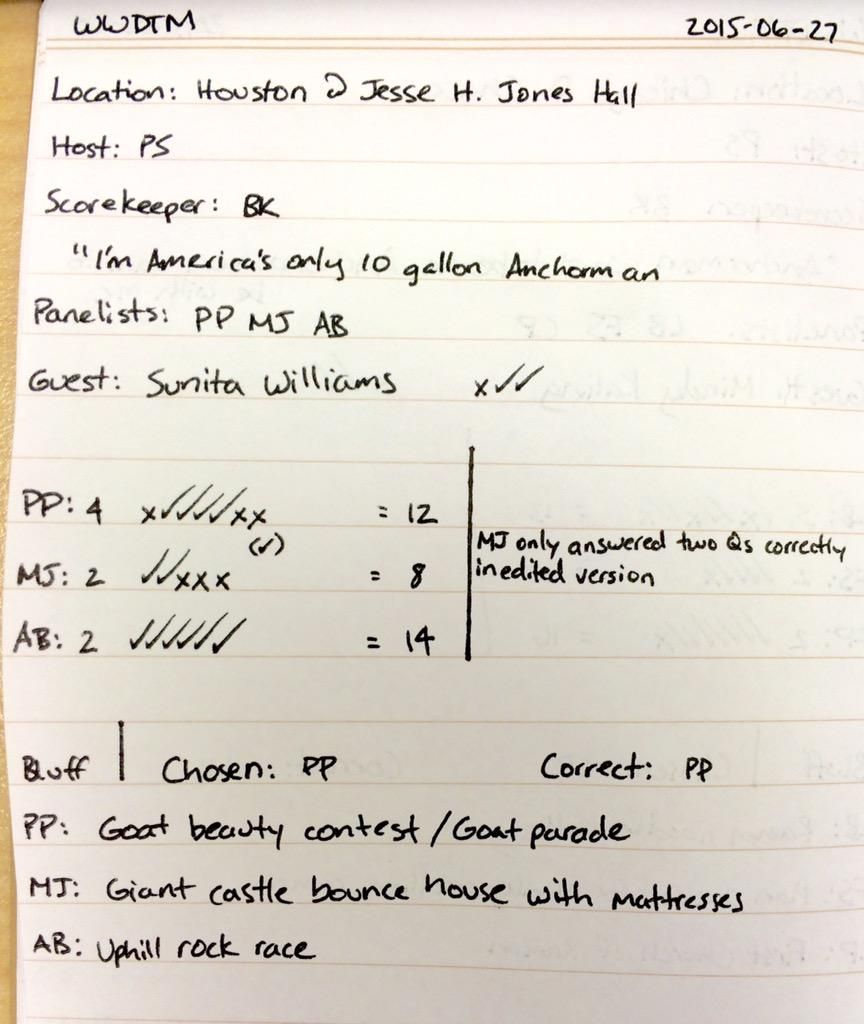 WWDTM 2015-06-27
Location: Houston @ Jesse H. Jones Hall
Host: PS
Scorekeeper: BK
"I'm America's only 10 gallon Anchorman
Panelists: PP MJ AB
Guest: Sunita Williams x✓✓
PP: 4 x✓✓✓✓✓xx = 12
(✓)
MJ: 2 ✓✓xxx = 8
AB: 2 ✓✓✓✓✓✓ = 14
MJ only answered two Qs correctly
in edited version
Bluff | Chosen: PP Correct: PP
PP: Goat beauty contest / Goat parade
MJ: Giant castle bounce house with mattresses
AB: Uphill rock race